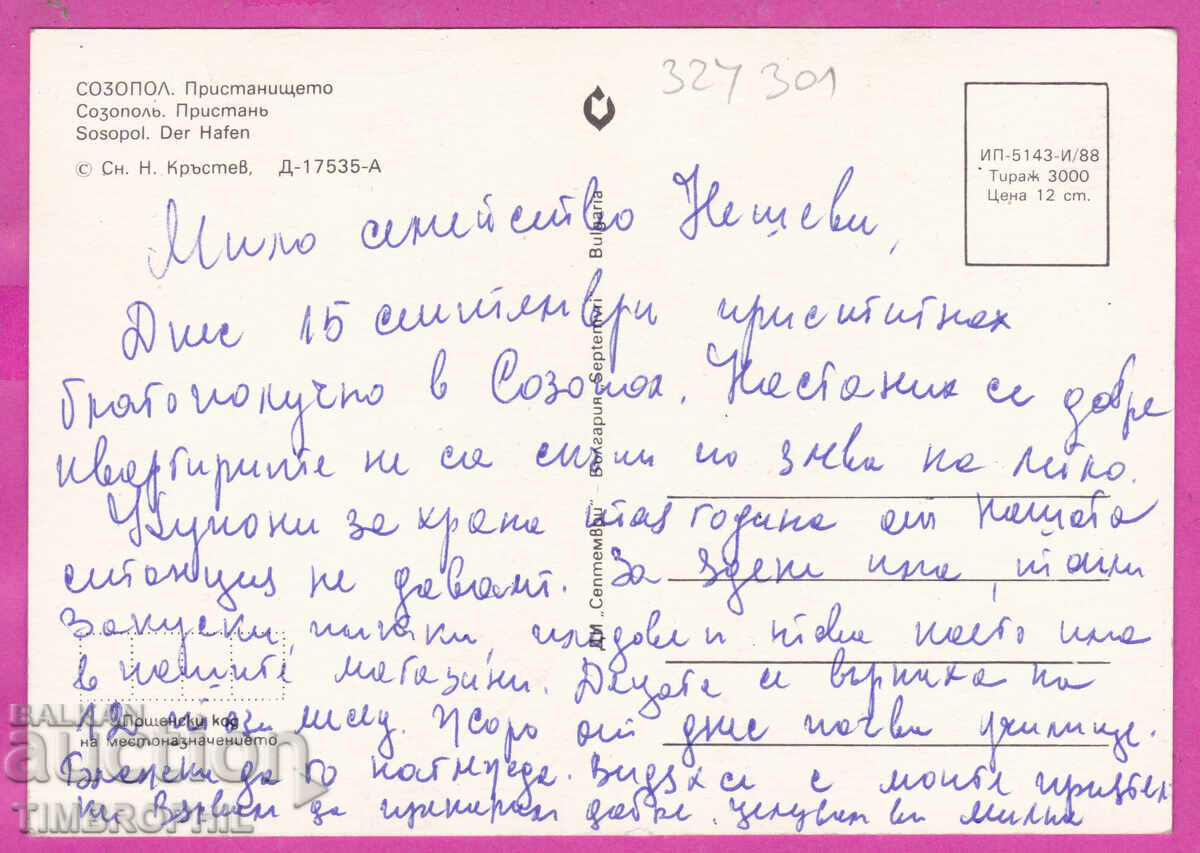 СОЗОПОЛ. Пристанището
Созополь. Пристань
Sosopol. Der Hafen
© Сн. Н. Кръстев, Д-17535-А
327301
ИП-5143-И/88
Тираж 3000
Цена 12 ст.
ДИ „Септември" България Septemvri Bulgaria
Мило семейство Нешеви,
Днес 15 септември пристигнах
благополучно в Созопол. Настаних се добре
квартирите не са скъпи по 2 лева на легло.
Купони за храна тая година от нашата
станция не дават. За ядене има, топли
закуски, плодове и това което има
в нашите магазини. Децата се върнаха на
12 този месец. Жоро от днес почва училище.
да го наглежда. Видях се с моите приятел
ки вярвам да изкарам добре. Целувам ви Милка
Пощенски код
на местоназначението
BALKAN
auction
TIMBROPHIL